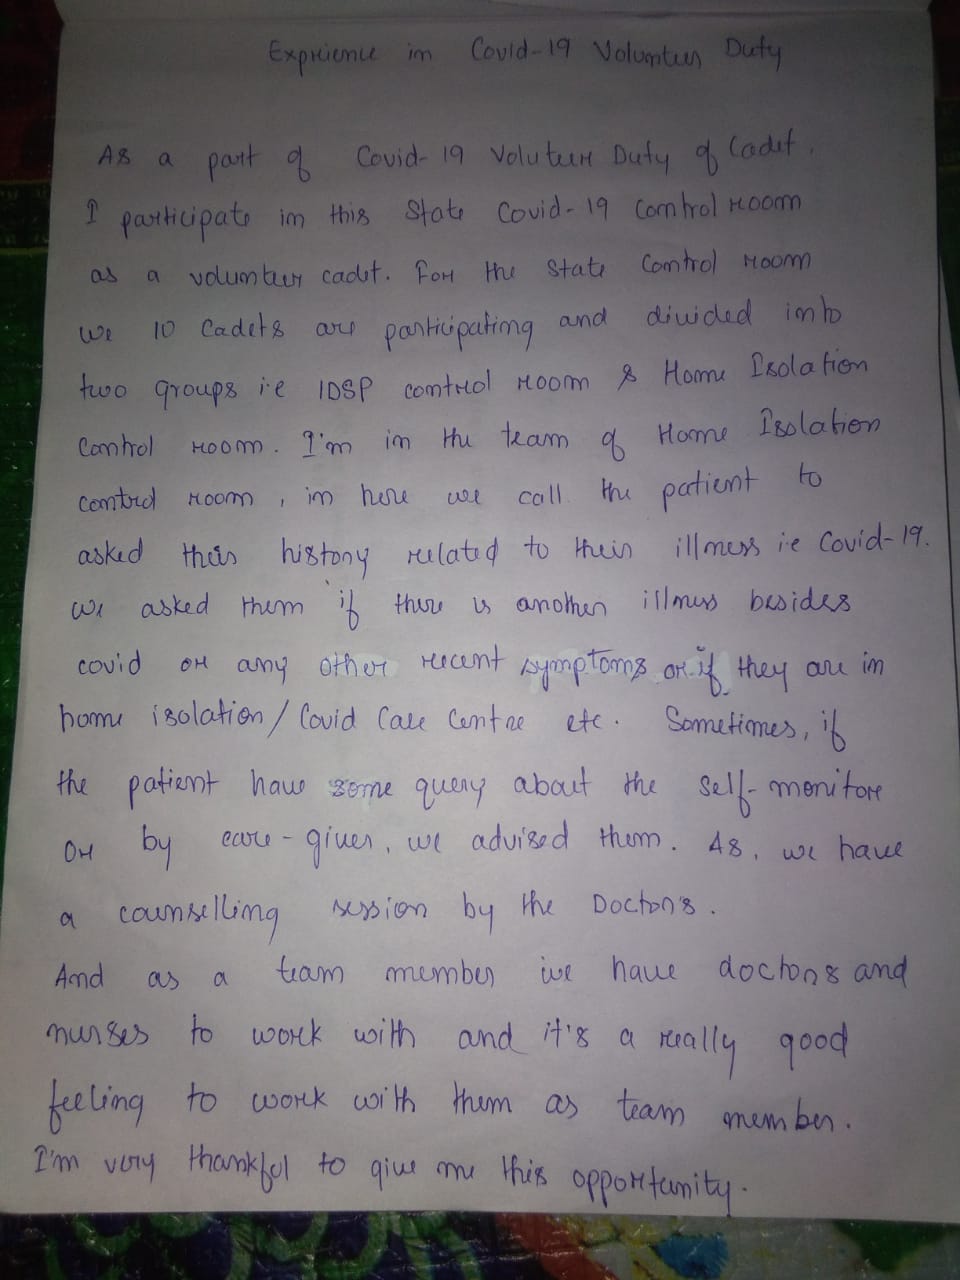 Exprience in Covid-19 Volunteer Duty
As a part of Covid-19 Voluteer Duty of Cadet.
I participate in this State Covid-19 Control room
as a volunteer cadet. For the State Control room
we 10 Cadets are participating and divided into
two groups i.e IDSP control room & Home Isolation
Control room. I'm in the team of Home Isolation
control room, in here we call the patient to
asked their history related to their illness i.e Covid-19.
we asked them if there is another illness besides
covid or any other recent symptoms or if they are in
home isolation/Covid Care Centre etc. Sometimes, if
the patient have some query about the self-monitore
or by care-giver, we advised them. As, we have
a counselling session by the Doctor's.
And as a team member we have doctors and
nurses to work with and it's a really good
feeling to work with them as team member.
I'm very thankful to give me this opportunity.